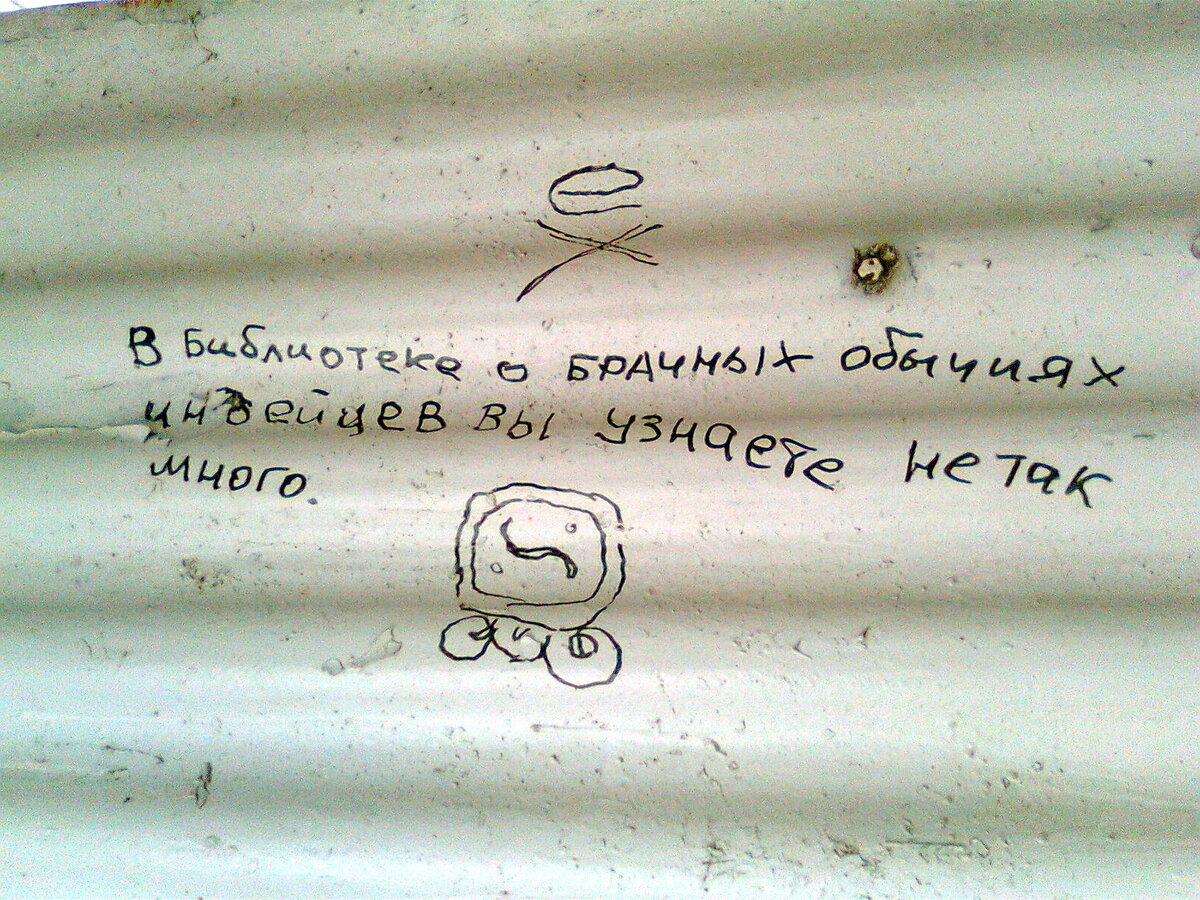 В Библиотеке о БРАЧНЫХ обычиях
индейцев вы узнаете не так
много.